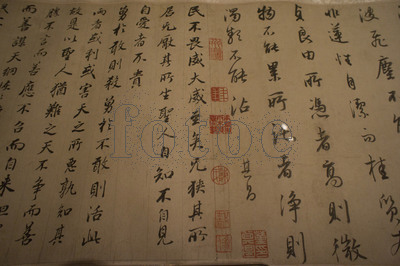 波飛塵不
非蓮性自潔而桂質本
貞良由所憑者高則微
物不能累所託者淨則
濁類不能沾 其昌
民不畏威大威至矣无狹其所
居无厭其所生聖人自知不自見
自愛者不貴
勇於敢則殺勇於不敢則活此
兩者或利或害天之所惡孰知其
故是以聖人猶難之天不爭而善
勝不言而善應不召而自來坦
而善謀天網
fotoe